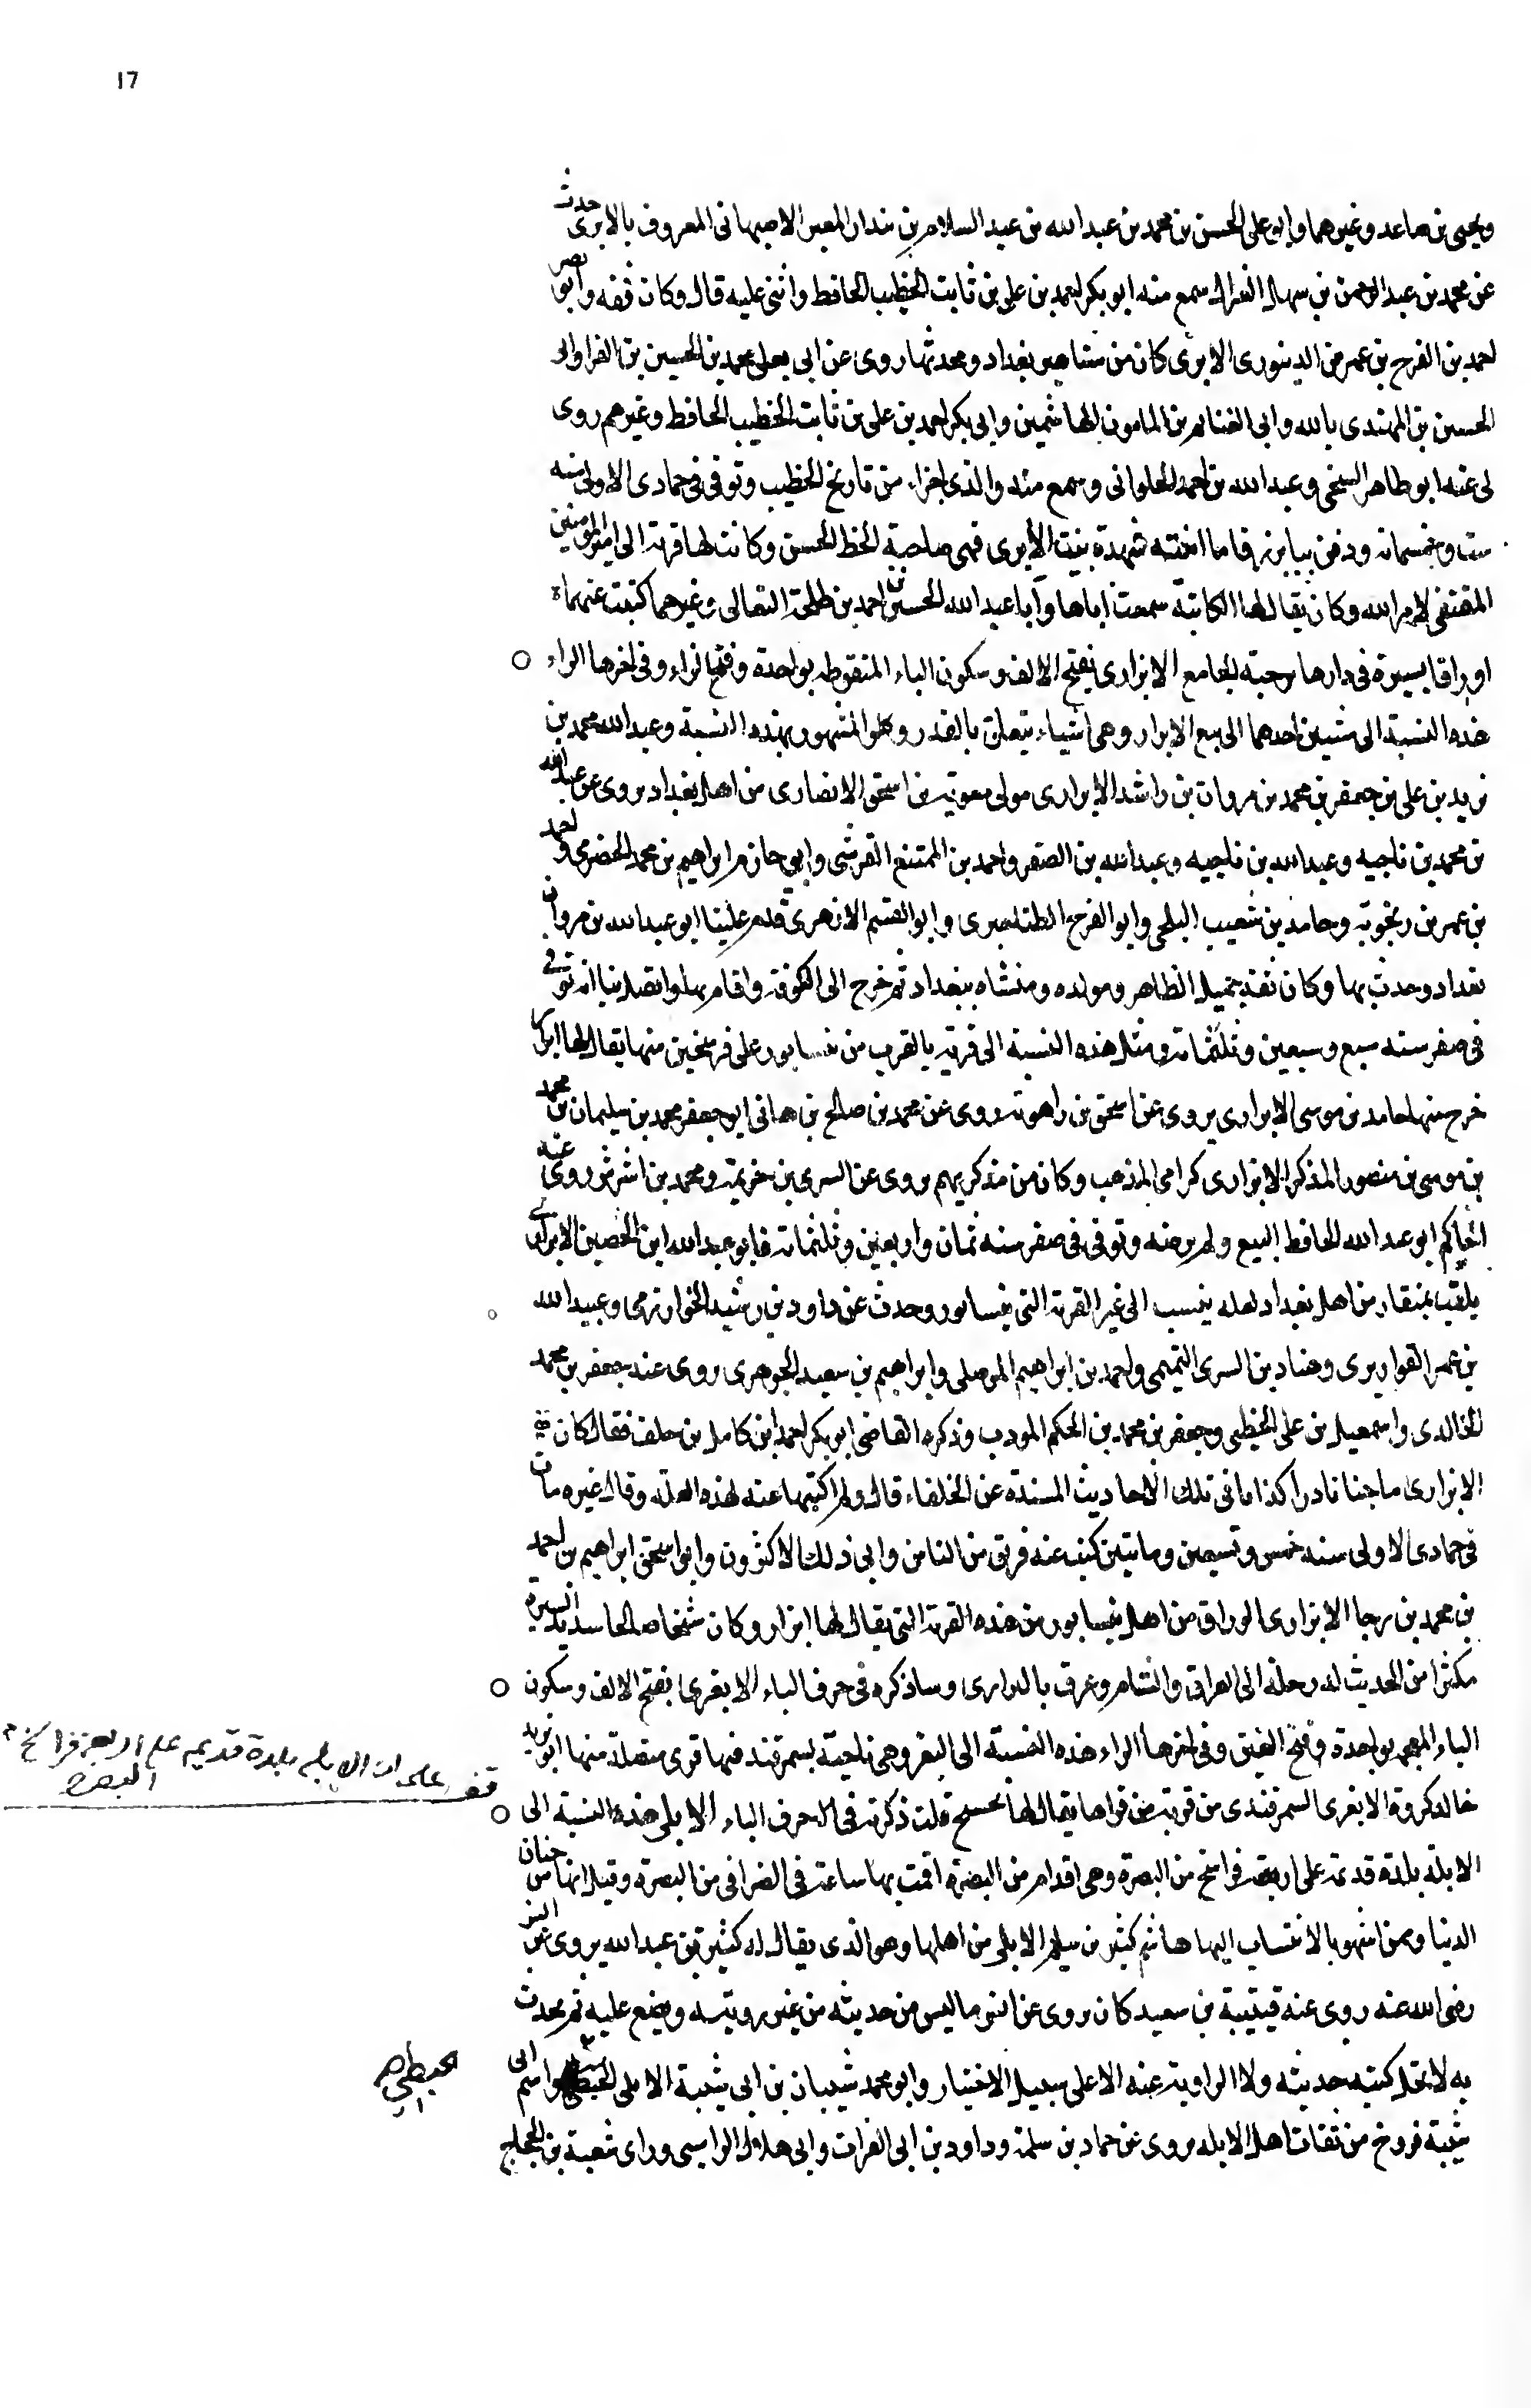 17
ويحيى بن صاعد وغيرهما وابو على الحسن بن محمد بن عبد الله بن عبد السلام بن بندار المعبر الاصبهانى المعروف بالابرى حدث
عن محمد بن عبد الرحمن بن سهل الغزال سمع منه ابو بكر احمد بن على بن ثابت الخطيب الحافظ واثنى عليه قال وكان ثقه وابو نصر
احمد بن الفرج بن عمر الدينورى الابرى كان من مشاهير بغداد ومحدثها روى عن ابى يعلى محمد بن الحسين بن الفرا وابى
الحسين بن المهتدى بالله وابى الغنايم بن المامون الهاشمين وابى بكر احمد بن على بن ثابت الخطيب الحافظ وغيرهم روى
لى عنه ابو طاهر السنجى وعبد الله بن احمد الحلوانى وسمع منه والدى اجزاء من تاريخ الخطيب وتوفى فى جمادى الاولى سنه
ست وخمسمايه ودفن بباب ابرز فاما ابنته شهدة بنت الابرى فهى صاحبة الخط الحسن وكانت لها قربة الى امير المومنين
المقتفى لامر الله وكان يقال لها الكاتبة سمعت اباها وابا عبد الله الحسين بن احمد بن طلحة النعالى وغيرهما كتبت عنها
اوراقا يسيرة فى دارها برحبة الجامع الابزارى بفتح الالف وسكون الباء المنقوطه بواحدة وفتح الزاء وفى اخرها الراء
هذه النسبة الى شيئين احدهما الى بيع الابزار وهى اشياء تتعلق بالقدر والمشهور بهذه النسبة وعبد الله محمد بن
زيد بن على بن جعفر بن محمد بن مروان بن راشد الابزارى مولى معوية بن اسحق الانصارى من اهل بغداد يروى عن عبد الله
بن محمد بن ناجيه وعبد الله بن الصقر واحمد بن الممتنع القرشى وابى حازم ابراهيم بن محمد الحضرمى واحمد
بن عمر بن زنجويه وحامد بن شعيب البلخى وابو الفرج الطناجيرى وابو القسم الازهرى قدم علينا ابو عبد الله بن مروان
بغداد وحدث بها وكان ثقة جميل الظاهر ومولده ومنشاه ببغداد ثم خرج الى الكوفة واقام بها واتصل بنا انه توفى
فى صفر سنه سبع وسبعين وثلثماية ومثل هذه النسبة الى قرية بالقرب من نيسابور على فرسخين منها يقال لها ابزار
خرج منها حامد بن موسى الابزارى يروى عن اسحق بن راهوية روى عن محمد بن صالح بن هانى ابو جعفر محمد بن سليمان بن محمد
بن موسى بن منصور المذكر الابزارى كرامى المذهب وكان من مذكريهم يروى عن السرى بن خزيمة ومحمد بن اشرش روى عنه
الحاكم ابو عبد الله الحافظ البيع ولم يرضه وتوفى فى صفر سنه ثمان واربعين وثلثماية فابو عبد الله ابن الحصين الابزارى
يلقب بمنقار من اهل بغداد لعله ينسب الى غير القرية التى بنيسابور وحدث عن داود بن رشيد الخوارزمى وعبيد الله
بن عمر القواريرى وهناد بن السرى التميمى واحمد بن ابراهيم الموصلى وابراهيم بن سعيد الجوهرى روى عنه جعفر بن محمد
الخالدى واسمعيل بن على الخطبى وجعفر بن محمد بن الحكم المودب وذكره القاضى ابو بكر احمد ابن كامل بن خلف فقال كان
الابزارى ماجنا نادرا كذابا فى تلك الاحاديث المسندة عن الخلفاء قال ولم اكتبها عنه لهذه العلة وقال غيره مات
فى جمادى الاولى سنه خمس وتسعين ومايتين كتب عنه فريق من الناس وابى ذلك الاكثرون وابو اسحق ابراهيم بن احمد
بن محمد بن رجا الابزارى الوراق من اهل نيسابور من هذه القرية التى يقال لها ابزار وكان شيخا صالحا سديد السيرة
مكثرا من الحديث له رحلة الى العراق والشام وعرف بالبزارى وساذكره فى حرف الباء الابغرى بفتح الالف وسكون
الباء المعجمه بواحدة وفتح الغين وفى اخرها الراء هذه النسبة الى ابغر وهى ناحية بسمرقند فيها قرى متصلة منها ابو يزيد
خالد كروة الابغرى السمرقندى من قرية من قراها يقال لها قلت ذكرته فى حرف الباء الابلى هذه النسبة الى
الابلة بلدة قديمة على اربعة فراسخ من البصرة وهى اقدم من البصرة اقمت بها ساعة فى انصرافى من البصرة وقيل انها من جنان
الدنيا وممن اشتهر بالانتساب اليها هاشم كثير بن سليم الابلى من اهلها وهو الذى يقال له كثير بن عبد الله يروى عن انس
رضى الله عنه روى عنه قتيبة بن سعيد كان يروى عن انس ما ليس من حديثه من غير رويته ويضع عليه ثم يحدث
به لا تحل كتبة حديثه ولا الراوية عنه الا على سبيل الاختبار وابو محمد شيبان بن ابى شيبة الابلى الحبطى واسم ابى
شيبة فروخ من ثقات اهل الابله يروى عن حماد بن سلمة وداود بن ابى الفرات وابى هلال الراسبى وراى شعبة بن الحجاج
قف على ان الابله بلدة قديمه على اربعة فراسخ من
البصره
الحبطى